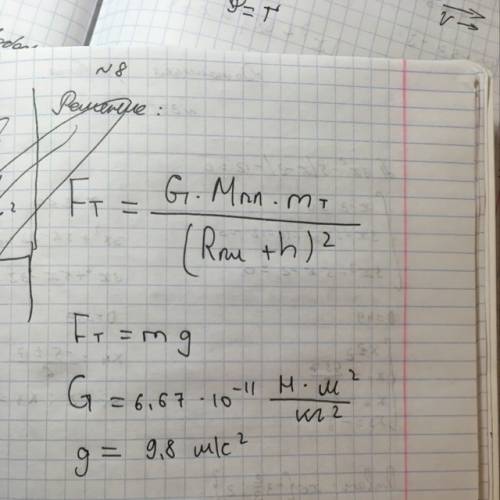 N8
Решение :
Fт = G · Mпл · mт / (Rпл + h)²
Fт = m g
G = 6,67 · 10⁻¹¹ Н · м² / кг²
g = 9,8 м/с²